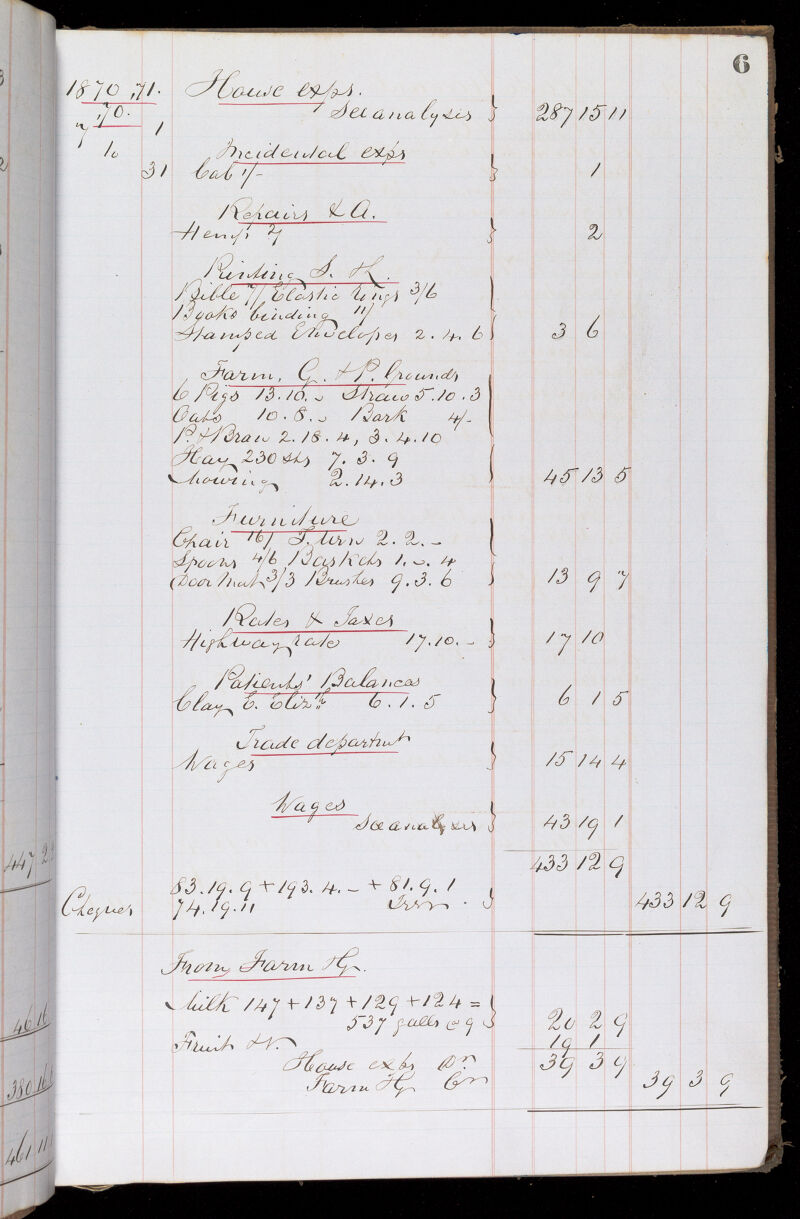 6
1870 ,71. House exps.
,70. See analysis } 287 15 11
7 1
to Incidental exps
31 Cab 1/- } 1
Repairs & A.
Hemp 2/ } 2
Printing S. &c.
Bible 7/ Elastic rings 3/6
Books binding 11/
Stamped Envelopes 2.4.6 } 3 6
Farm, G. & P. Grounds
6 Pigs 13.10.- Straw 5.10.3
Oats 10.8.- Bark 4/-
P. & Bran 2.18.4, 3.4.10
Hay 230 sts 7.3.9
Mowing 2.14.3 } 45 13 5
Furniture
Chair 16/ T. Urn 2.2.-
Spoons 4/6 Baskets 1.-.4
Door Mat 3/3 Brushes 9.3.6 } 13 9 7
Rates & Taxes
Highway rate 17.10.- } 17 10
Patients' Balances
Clay E. Elizth 6.1.5 } 6 1 5
Trade departmt
Wages } 15 14 4
Wages
See analysis } 43 19 1
433 12 9
83.19.9 + 193.4.- + 81.9.1
Cheques 74.19.11 Trsr } 433 12 9
From Farm Hg.
Milk 147 + 137 + 129 + 124 =
537 galls @ 9 } 20 2 9
Fruit & V. 19 1
House exps Dr 39 3 9
Farm Hg Cr 39 3 9
447 2
46 16
380 16
461 11